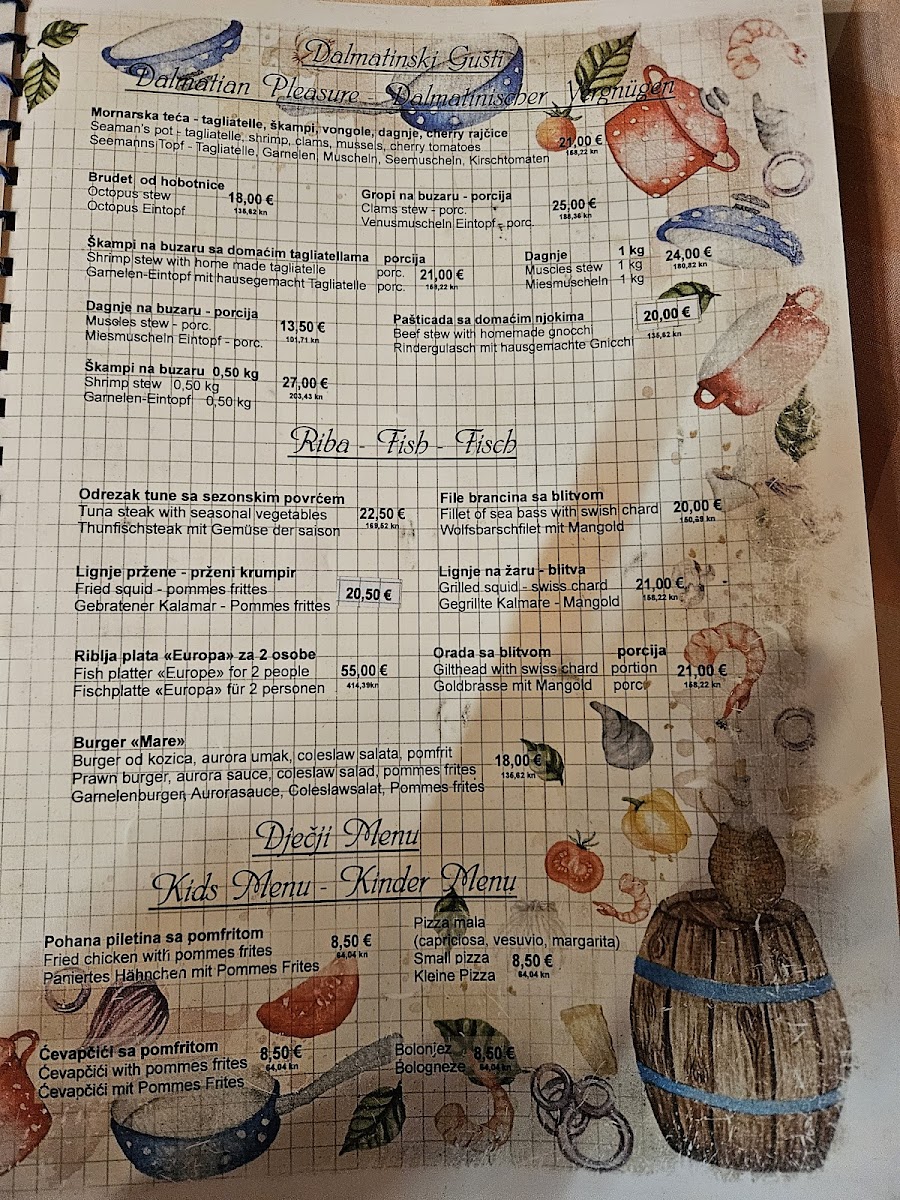 Dalmatinski Gušti
Dalmatian Pleasure - Dalmatinischer Vergnügen
Mornarska teća - tagliatelle, škampi, vongole, dagnje, cherry rajčice
Seaman's pot - tagliatelle, shrimp, clams, mussels, cherry tomatoes
Seemanns Topf - Tagliatelle, Garnelen, Muscheln, Seemuscheln, Kirschtomaten
21,00 €
158,22 kn
Brudet od hobotnice
Octopus stew
Octopus Eintopf
18,00 €
135,62 kn
Gropi na buzaru - porcija
Clams stew - porc.
Venusmuscheln Eintopf - porc.
25,00 €
188,36 kn
Škampi na buzaru sa domaćim tagliatellama porcija
Shrimp stew with home made tagliatelle porc.
Garnelen-Eintopf mit hausegemacht Tagliatelle porc.
21,00 €
158,22 kn
Dagnje 1 kg
Muscles stew 1 kg
Miesmuscheln 1 kg
24,00 €
180,82 kn
Dagnje na buzaru - porcija
Muscles stew - porc.
Miesmuscheln Eintopf - porc.
13,50 €
101,71 kn
Pašticada sa domaćim njokima
Beef stew with homemade gnocchi
Rindergulasch mit hausgemachte Gnicchi
20,00 €
135,62 kn
Škampi na buzaru 0,50 kg
Shrimp stew 0,50 kg
Garnelen-Eintopf 0,50 kg
27,00 €
203,43 kn
Riba - Fish - Fisch
Odrezak tune sa sezonskim povrćem
Tuna steak with seasonal vegetables
Thunfischsteak mit Gemüse der saison
22,50 €
169,52 kn
File brancina sa blitvom
Fillet of sea bass with swish chard
Wolfsbarschfilet mit Mangold
20,00 €
150,69 kn
Lignje pržene - prženi krumpir
Fried squid - pommes frittes
Gebratener Kalamar - Pommes frittes
20,50 €
Lignje na žaru - blitva
Grilled squid - swiss chard
Gegrillte Kalmare - Mangold
21,00 €
158,22 kn
Riblja plata «Europa» za 2 osobe
Fish platter «Europe» for 2 people
Fischplatte «Europa» für 2 personen
55,00 €
414,39kn
Orada sa blitvom porcija
Gilthead with swiss chard portion
Goldbrasse mit Mangold porc.
21,00 €
158,22 kn
Burger «Mare»
Burger od kozica, aurora umak, coleslaw salata, pomfrit
Prawn burger, aurora sauce, coleslaw salad, pommes frites
Garnelenburger, Aurorasauce, Coleslawsalat, Pommes frites
18,00 €
135,62 kn
Dječji Menu
Kids Menu - Kinder Menu
Pohana piletina sa pomfritom
Fried chicken with pommes frites
Paniertes Hähnchen mit Pommes Frites
8,50 €
64,04 kn
Pizza mala
(capriciosa, vesuvio, margarita)
Small pizza
Kleine Pizza
8,50 €
64,04 kn
Ćevapčići sa pomfritom
Ćevapčići with pommes frites
Ćevapčići mit Pommes Frites
8,50 €
64,04 kn
Bolonjez
Bologneze
8,50 €
64,04 kn